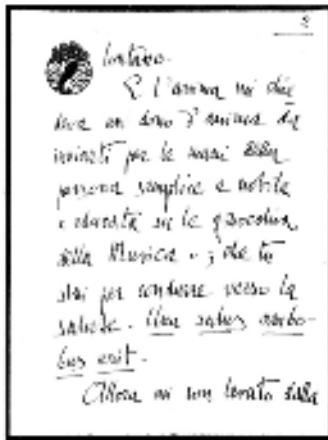 2
lontano.
E l'anima mi chie
deva un dono d'anima da
inviarti per le mani della
persona semplice e nobile
e educata su le
della Musica "; che tu
stai per condurre verso la
salute. Una salus ambo-
bus erit.
Allora mi son levato dalla